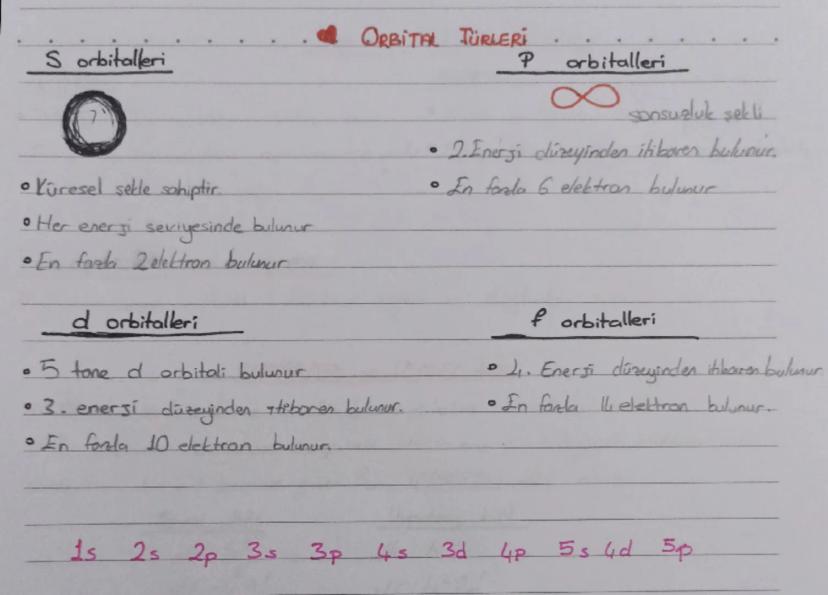 ORBİTAL TÜRLERİ
S orbitalleri
sonsuzluk şekli
• Küresel şekle sahiptir.
• Her enerji seviyesinde bulunur
• En fazla 2 elektron bulunur
P orbitalleri
• 2. Enerji düzeyinden itibaren bulunur.
• En fazla 6 elektron bulunur
d orbitalleri
• 5 tane d orbitali bulunur
• 3. enerji düzeyinden itibaren bulunur.
• En fazla 10 elektron bulunur.
f orbitalleri
• 4. Enerji düzeyinden itibaren bulunur
• En fazla 14 elektron bulunur.
1s 2s 2p 3s 3p 4s 3d 4p 5s 4d 5p